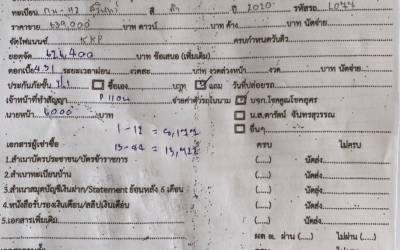 ทะเบียน กท-92 สี ดำ ปี 2020 รหัสรถ L077
ราคาขาย 639,000 บาท ดาวน์ บาท ค้าง บาท นัดจ่าย
จัดไฟแนนซ์ KKP ครบกำหนดวันสิว
ยอดจัด 626,400 บาท ข้อเสนอ (เพิ่มเติม)
ดอกเบี้ย 4.31 ระยะเวลาผ่อน งวดละ งวดล่วงหน้า งวด บาท นัดจ่าย
ประกันภัยชั้น ซื้อเอง บาท แถม วันที่ปล่อยรถ
เจ้าหน้าที่ทำสัญญา จ่ายค่าตัวรถในนาม บจก.โชคคูณโชคคุตร
นายหน้า 6000 บาท น.ส.ดารัศมิ์ จันทรสุวรรณ
1-12 = 9,177 อื่นๆ
เอกสารผู้เช่าซื้อ 13-84 = 13,422 ไม่ครบ ครบ
1.สำเนาบัตรประชาชน/บัตรข้าราชการ (....) นัดส่ง (....)
2.สำเนาทะเบียนบ้าน (....) นัดส่ง (....)
3.สำเนาสมุดบัญชีเงินฝาก/Statement ย้อนหลัง 6 เดือน (....) นัดส่ง (....)
4.หนังสือรับรองเงินเดือน/สลิปเงินเดือน (....) นัดส่ง (....)
5.เอกสารเพิ่มเติม (....) นัดส่ง (....)
ผล ต. ผ่าน (....) ไม่ผ่าน (....)